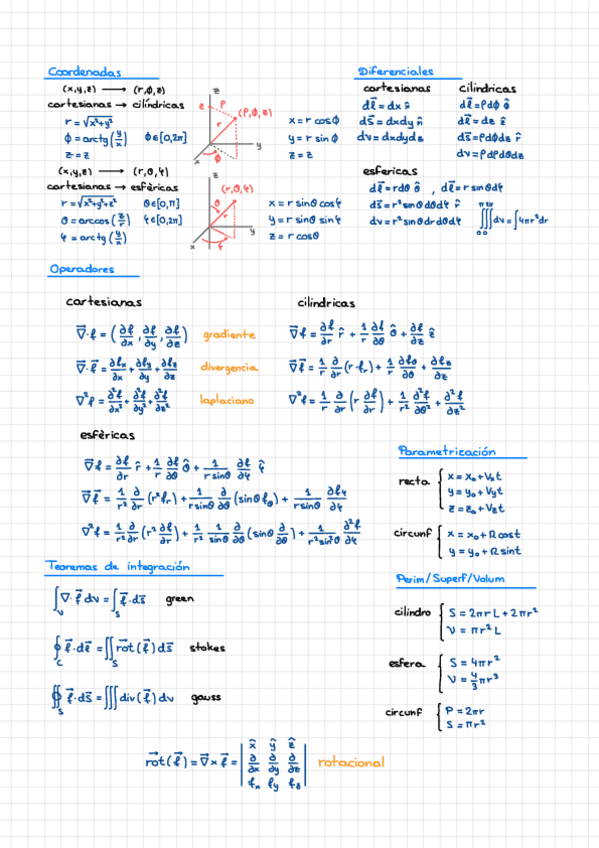 Coordenadas
(x,y,z) ⟶ (r,ϕ,z)
cartesianas → cilíndricas
r = √x²+y²
ϕ = arctg(y/x) ϕ∈[0,2π]
z = z
z
z ρ (ρ,ϕ,z)
r
y
x ϕ
x = r cosϕ
y = r sinϕ
z = z
(x,y,z) ⟶ (r,θ,φ)
cartesianas → esfèricas
r = √x²+y²+z² θ∈[0,π]
θ = arccos(z/r) φ∈[0,2π]
φ = arctg(y/x)
z
(r,θ,φ)
θ r
y
x φ
x = r sinθ cosφ
y = r sinθ sinφ
z = r cosθ
Diferenciales
cartesianas
dl⃗ = dx n̂
ds⃗ = dxdy n̂
dv = dxdydz
cilindricas
dl⃗ = ρdϕ ϕ̂
dl⃗ = dz ẑ
ds⃗ = ρdϕdz r̂
dv = ρdρdϕdz
esfericas
dl⃗ = rdθ θ̂ , dl⃗ = r sinθdφ
ds⃗ = r² sinθ dθdφ r̂
dv = r² sinθ dr dθ dφ ∭dv = ∫4πr²dr
Operadores
cartesianas
∇⃗f = (∂f/∂x, ∂f/∂y, ∂f/∂z) gradiente
∇⃗·f⃗ = ∂fx/∂x + ∂fy/∂y + ∂fz/∂z divergencia
∇²f = ∂²f/∂x² + ∂²f/∂y² + ∂²f/∂z² laplaciano
cilindricas
∇⃗f = ∂f/∂r r̂ + 1/r ∂f/∂θ θ̂ + ∂f/∂z ẑ
∇⃗f⃗ = 1/r ∂/∂r (r·fr) + 1/r ∂fθ/∂θ + ∂fz/∂z
∇²f = 1/r ∂/∂r (r ∂f/∂r) + 1/r² ∂²f/∂θ² + ∂²f/∂z²
esfèricas
∇⃗f = ∂f/∂r r̂ + 1/r ∂f/∂θ θ̂ + 1/rsinθ ∂f/∂φ φ̂
∇⃗f⃗ = 1/r² ∂/∂r (r²fr) + 1/rsinθ ∂/∂θ (sinθ fθ) + 1/rsinθ ∂fφ/∂φ
∇²f = 1/r² ∂/∂r (r² ∂f/∂r) + 1/r² 1/sinθ ∂/∂θ (sinθ ∂/∂θ) + 1/r²sin²θ ∂²f/∂φ
Parametrización
recta { x = x₀ + Vxt
y = y₀ + Vyt
z = z₀ + Vzt
circunf { x = x₀ + R cost
y = y₀ + R sint
Teoremas de integración
∫v ∇·f⃗ dv = ∫s f⃗·ds⃗ green
∮c f⃗·dl⃗ = ∬s rot⃗(f⃗) ds⃗ stokes
∯s f⃗·ds⃗ = ∭ div(f⃗) dv gauss
rot⃗(f⃗) = ∇⃗×f⃗ = | x̂ ŷ ẑ |
| ∂/∂x ∂/∂y ∂/∂z | rotacional
| fx fy fz |
Perim/Superf/Volum
cilindro { S = 2πrL + 2πr²
V = πr²L
esfera { S = 4πr²
V = 4/3 πr³
circunf { P = 2πr
S = πr²